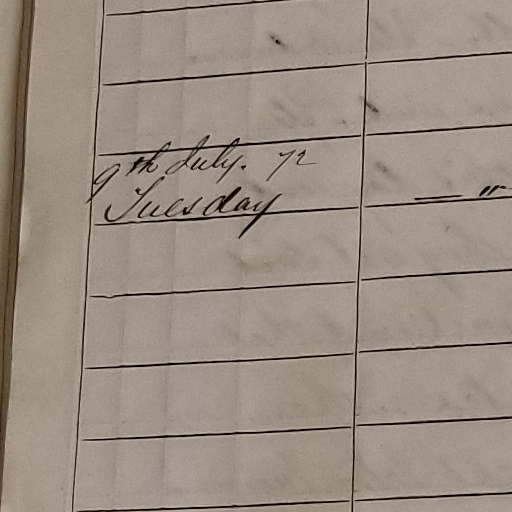 9th July. 72
Tuesday
— "